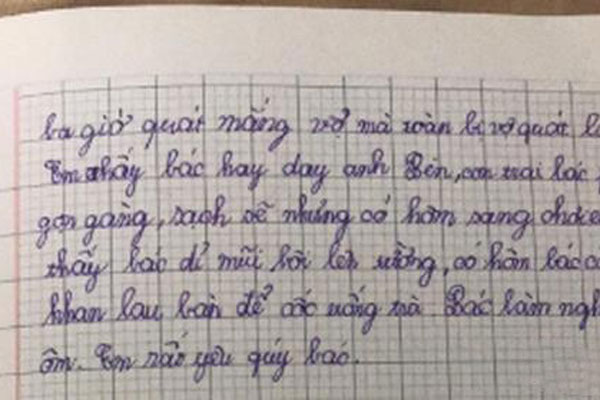 ba giờ quát mắng vợ mà toàn bị vợ quát lạ
Em thấy bác hay dạy anh Bên, con trai bác
gọn gàng, sạch sẽ nhưng có hôm sang chơi e
thấy bác dỉ mũi bôi lên tường, có hôm bác c
khan lau bàn để cốc uống trà Bác làm ngh
ôm. Em rất yêu quý bác.